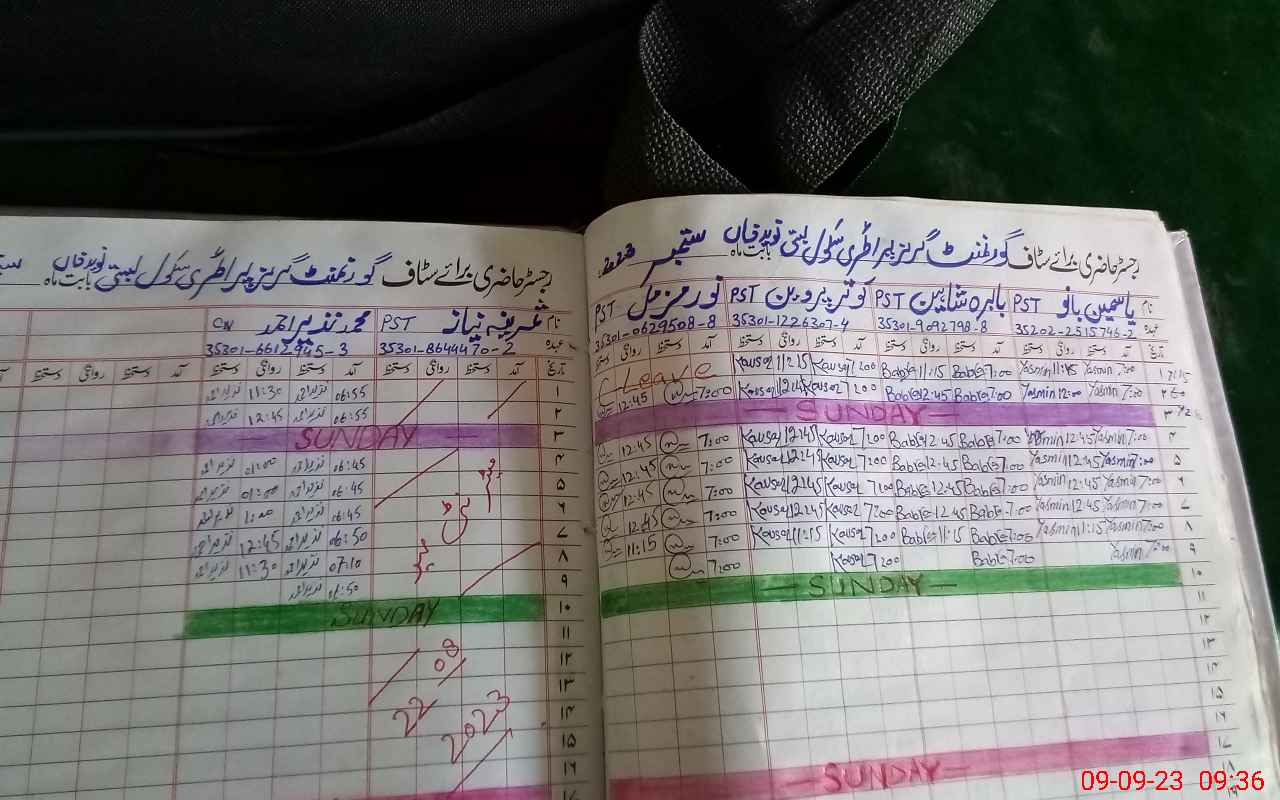 رجسٹر حاضری برائے سٹاف گورنمنٹ گرلز پرائمری سکول بستی نوید خاں بابت ماہ ستمبر
نام یاسمین بانو PST بابرہ شاہین PST کوثر پروین PST نور مزمل PST
عہدہ 35202-2515746-2 35301-9092798-8 35301-1226307-4 35301-0629508-8
تاریخ آمد دستخط روانگی دستخط آمد دستخط روانگی دستخط آمد دستخط روانگی دستخط آمد دستخط روانگی دستخط
۱ 7:00 Yasmin 11:15 Yasmin 7:00 Babra 11:15 Babra 7:00 Kausar 11:15 Kausar C Leave
۲ 7:00 Yasmin 12:00 Yasmin 7:00 Babra 12:45 Babra 7:00 Kausar 12:45 Kausar 7:00 12:45
۳ SUNDAY
۴ 7:00 Yasmin 12:45 Yasmin 7:00 Babra 12:45 Babra 7:00 Kausar 12:45 Kausar 7:00 12:45
۵ 7:00 Yasmin 12:45 Yasmin 7:00 Babra 12:45 Babra 7:00 Kausar 12:45 Kausar 7:00 12:45
۶ 7:00 Yasmin 12:45 Yasmin 7:00 Babra 12:45 Babra 7:00 Kausar 12:45 Kausar 7:00 12:45
۷ 7:00 Yasmin 12:45 Yasmin 7:00 Babra 12:45 Babra 7:00 Kausar 12:45 Kausar 7:00 12:45
۸ 7:00 Yasmin 11:15 Yasmin 7:00 Babra 11:15 Babra 7:00 Kausar 11:15 Kausar 7:00 11:15
۹ 7:00 Yasmin 7:00 Babra 7:00 Kausar 7:00
۱۰ SUNDAY
۱۱
۱۲
۱۳
۱۴
۱۵
۱۶
۱۷ SUNDAY
۱۸
رجسٹر حاضری برائے سٹاف گورنمنٹ گرلز پرائمری سکول بستی نوید خاں بابت ماہ
نام PST محمد نذیر احمد
عہدہ 35301-8644470-2 35301-6612945-3
تاریخ آمد دستخط روانگی دستخط آمد دستخط روانگی دستخط آمد دستخط روانگی دستخط
۱ 06:55 نذیر احمد 11:30 نذیر احمد
۲ 06:55 نذیر احمد 12:45 نذیر احمد
۳ SUNDAY
۴ 06:45 نذیر احمد 01:00 نذیر احمد
۵ 06:45 نذیر احمد 01:00 نذیر احمد
۶ 06:45 نذیر احمد 1:00
۷ 06:50 نذیر احمد 12:45 نذیر احمد
۸ 07:10 نذیر احمد 11:30 نذیر احمد
۹ 06:50 نذیر احمد
۱۰ SUNDAY
۱۱
۱۲ 08
۱۳
۱۴ 22
۱۵ 2023
۱۶
۱۷
09-09-23 09:36